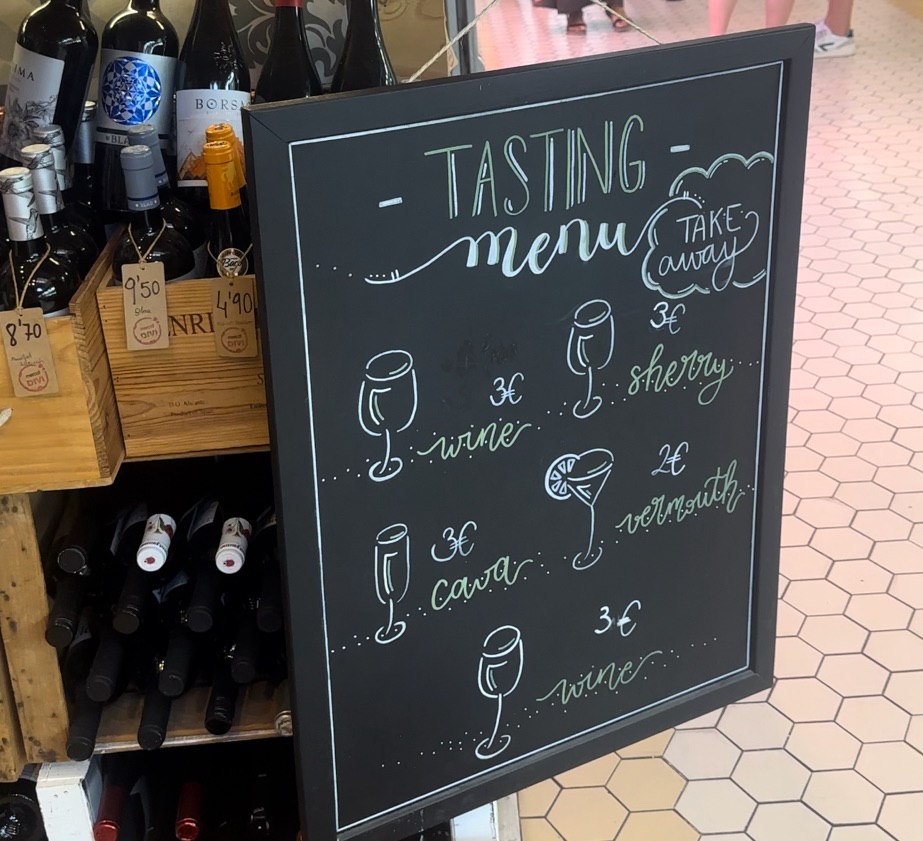 TASTING
menu
TAKE
away
3€
sherry
3€
wine
2€
vermouth
3€
cava
3€
wine
BORSA
9'50
4'90
8'70
DIVI
DIVI
DIVI
NRI